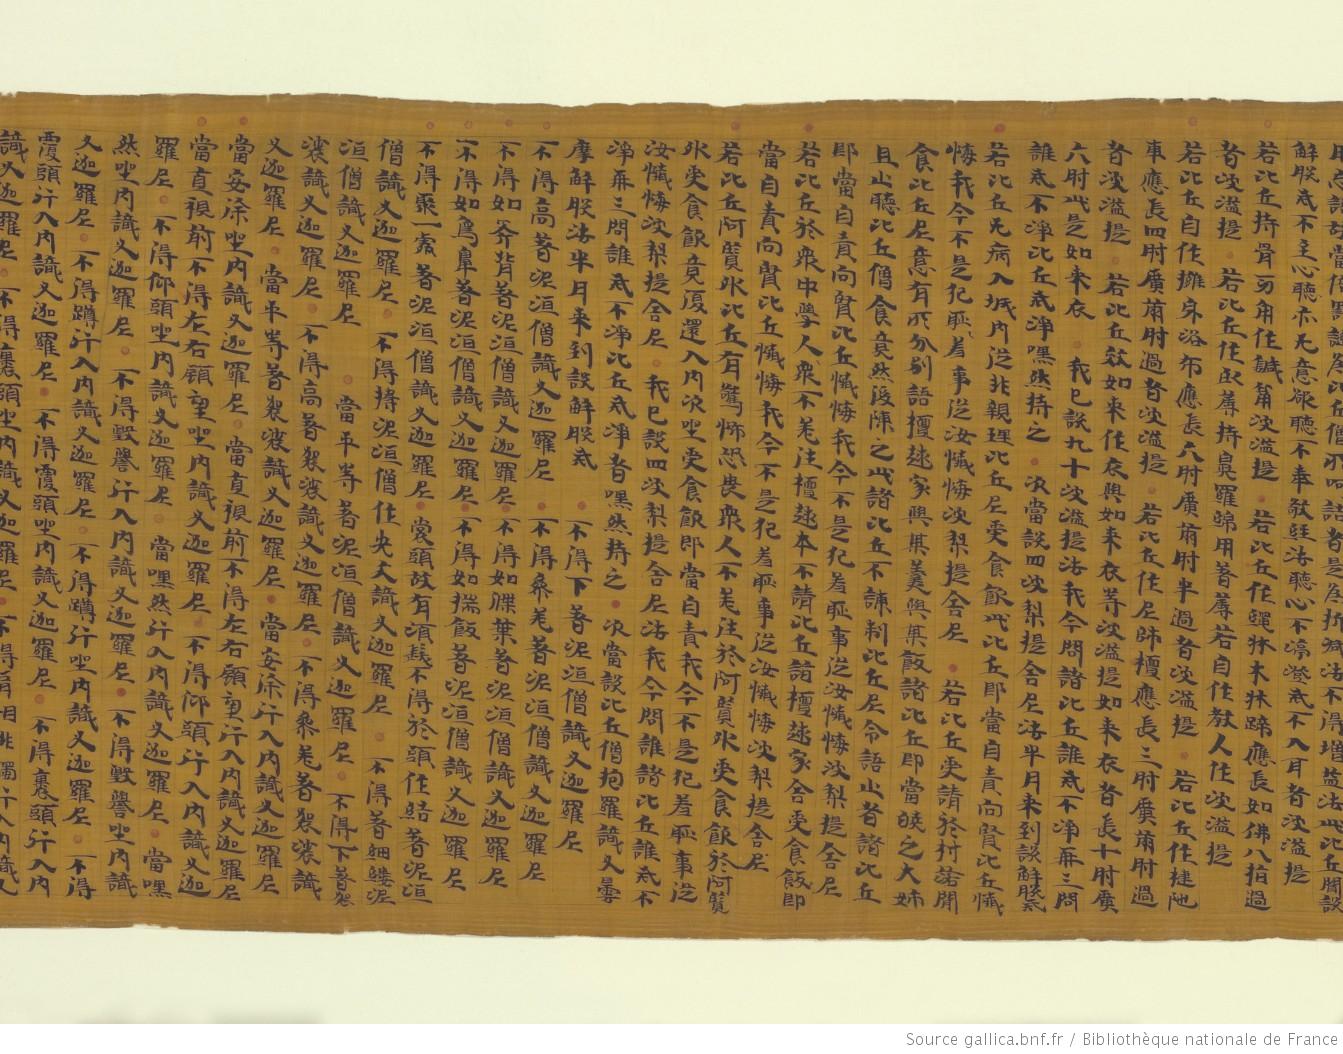 解脱戒不主心聽亦无意欲聽不奉教廷法聽心不渟澄戒不入耳者波溢提
若比丘持骨牙角作鍼甬波溢提 若比丘作蠅牀木牀蹄應長如佛八指過
者波溢提 若比丘作臥蓐持臭羅綿用著蓐若自作教人作波溢提
若比丘自作擁身洛布應長六肘廣兩肘半過者波溢提 若比丘作揵陁
車應長四肘廣兩肘過者波溢提 若比丘作尼師檀應長三肘廣兩肘過
者波溢提 若比丘欲如来作衣與如来衣等波溢提如来衣者長十肘廣
六肘此是如来衣 我已談九十波溢提法我今問諸比丘誰戒不淨再三問
誰戒不淨比丘戒淨嘿然持之 次當談四波梨提舍尼法半月来到談解脱戒
若比丘无病入城内從非親理比丘尼受食飲此比丘即當自責向賢比丘懴
悔我今不是犯恥羞事從汝懴悔波梨提舍尼 若比丘受請於村諾聞
食比丘尼意有所分別語檀越家與某羹與某飯諸比丘即當曉之大姊
且止聽比丘僧食竟然後陳之此諸比丘不諫制比丘尼令語止者諸比丘
即當自責向賢比丘懴悔我今不是犯羞恥事從汝懴悔波梨提舍尼
若比丘於衆中學人衆不羌注檀越本不請比丘詣檀越家舍受食飯即
當自責向賢比丘懴悔我今不是犯羞恥事從汝懴悔波梨提舍尼
若比丘阿蘭㳄比丘有驚怖恐畏衆人不羌注於阿蘭㳄受食飲於阿蘭
㳄受食飲竟復還入内次坐受食飲即當自責我今不是犯羞恥事從
汝懴悔波梨提舍尼 我已說四波梨提舍尼法我今問誰諸比丘誰戒不
淨再三問誰戒不淨比丘戒淨者嘿然持之 次當談比丘僧抱羅識叉曇
摩解脱法半月来到談解脱戒 不得下著泥洹僧識叉迦羅尼
不得高著泥洹僧識叉迦羅尼 不得參羌著泥洹僧識叉迦羅尼
不得如斧背著泥洹僧識叉迦羅尼 不得如牒葉著泥洹僧識叉迦羅尼
不得如爲鼻著泥洹僧識叉迦羅尼 不得如揣飯著泥洹僧識叉迦羅尼
不得聚一處著泥洹僧識叉迦羅尼 裳頭故有湏髮不得於頭作結著泥洹
僧識叉迦羅尼 不得持泥洹僧作央天識叉迦羅尼 不得著細縷泥
洹僧識叉迦羅尼 當平等著泥洹僧識叉迦羅尼 不得下著袈
裟識叉迦羅尼 不得高著袈裟識叉迦羅尼 不得參羌著袈裟識
叉迦羅尼 當平等著袈裟識叉迦羅尼 當安徐行入内識叉迦羅尼
當安徐坐内識叉迦羅尼 當直視前不得左右顧望行入内識叉迦羅尼
當直視前不得左右顧望坐内識叉迦羅尼 不得仰頭行入内識叉迦
羅尼 不得仰頭坐内識叉迦羅尼 當嘿然行入内識叉迦羅尼 當嘿
然坐内識叉迦羅尼 不得毀譽行入内識叉迦羅尼 不得毀譽坐内識
叉迦羅尼 不得蹲行入内識叉迦羅尼 不得蹲行坐内識叉迦羅尼 不得
覆頭行入内識叉迦羅尼 不得覆頭坐内識叉迦羅尼 不得裹頭行入内
識叉迦羅尼 不得裹頭坐内識叉迦羅尼
Source gallica.bnf.fr / Bibliothèque nationale de France